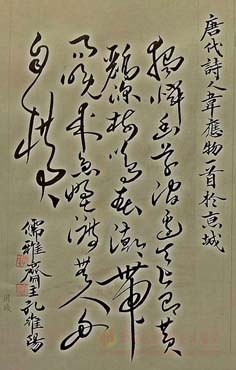 唐代詩人韋應物一首於京城
獨憐幽草澗邊生上有黃
鸝深樹鳴春潮帶
雨晚來急野渡無人舟
自橫
儒雅齋主孔維陽